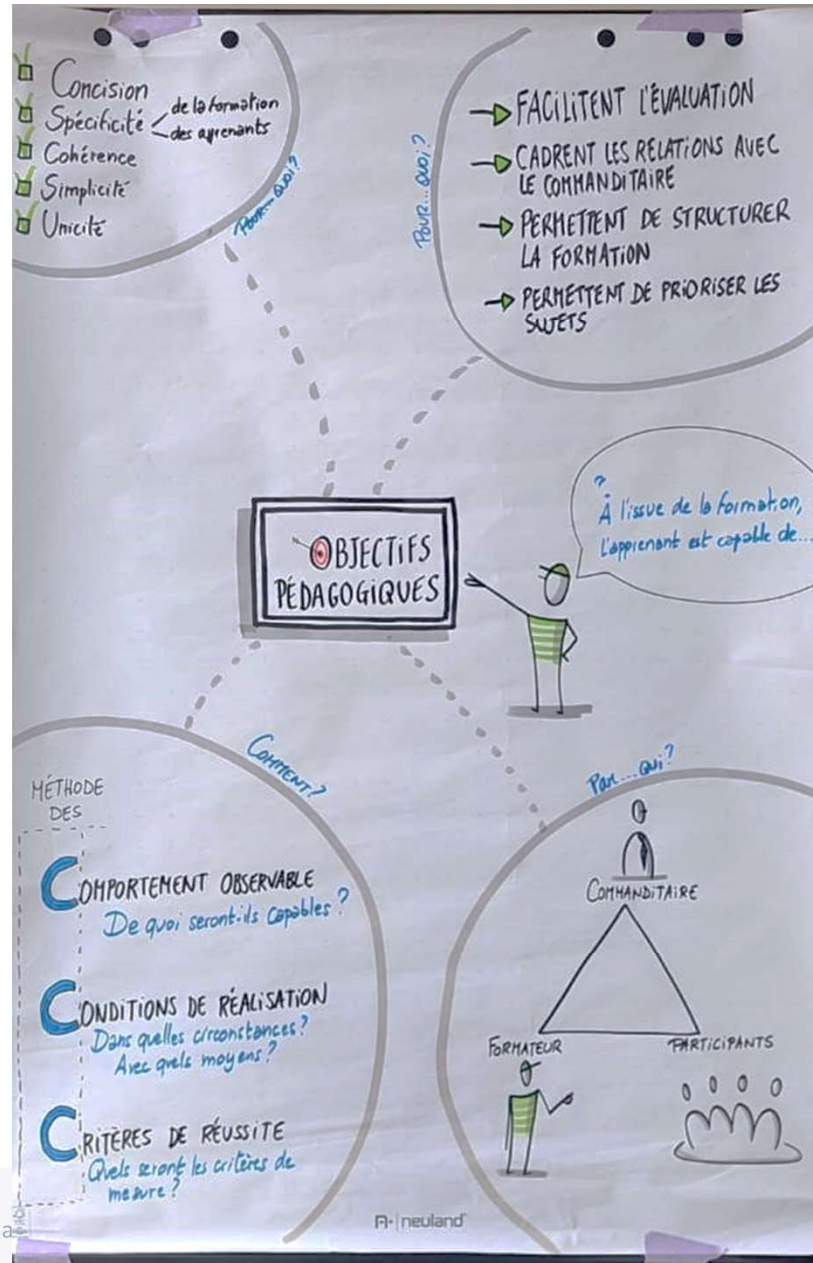 Concision
Spécificité
de la formation
des apprenants
Cohérence
Simplicité
Unicité
Pour... quoi?
Pour... quoi?
→ FACILITENT L'ÉVALUATION
→ CADRENT LES RELATIONS AVEC
LE COMMANDITAIRE
→ PERMETTENT DE STRUCTURER
LA FORMATION
→ PERMETTENT DE PRIORISER LES
SUJETS
OBJECTIFS
PÉDAGOGIQUES
?
À l'issue de la formation,
l'apprenant est capable de...
Comment?
MÉTHODE
DES
COMPORTEMENT OBSERVABLE
De quoi seront-ils capables?
CONDITIONS DE RÉALISATION
Dans quelles circonstances?
Avec quels moyens?
CRITÈRES DE RÉUSSITE
Quels seront les critères de
mesure?
Par... qui?
COMMANDITAIRE
FORMATEUR
PARTICIPANTS
neuland